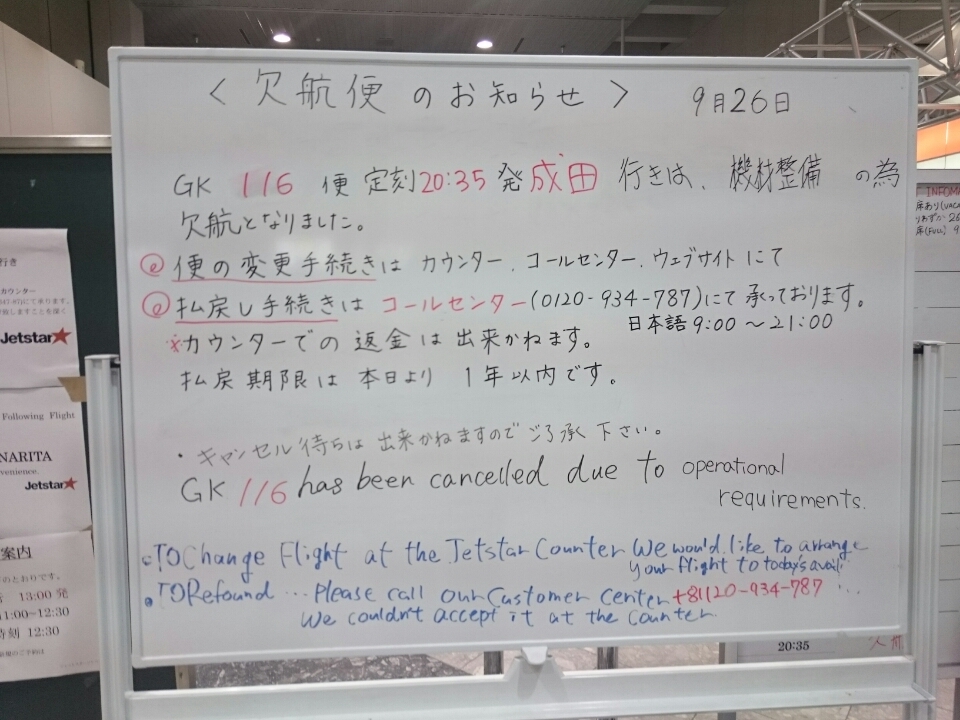 ＜欠航便のお知らせ＞ 9月26日
GK 116 便 定刻20:35発成田 行きは、機材整備 の為
欠航となりました。
便の変更手続きは カウンター、コールセンター、ウェブサイトにて
払戻し手続きは コールセンター(0120-934-787)にて承っております。
日本語 9:00～21:00
※カウンターでの返金は出来かねます。
払戻期限は本日より 1年以内です。
・キャンセル待ちは出来かねますのでご了承下さい。
GK 116 has been cancelled due to operational
requirements.
TO Change Flight at the Jetstar Counter We would like to arrange
your flight to today's avail
TO Refound ... Please call our Customer center +81120-934-787
We couldn't accept it at the counter
行き
カウンター
Jetstar
Following Flight
NARITA
venience.
Jetstar
案内
のとおりです。
13:00 発
11:00~12:30
時刻 12:30
INFOMA
20:35